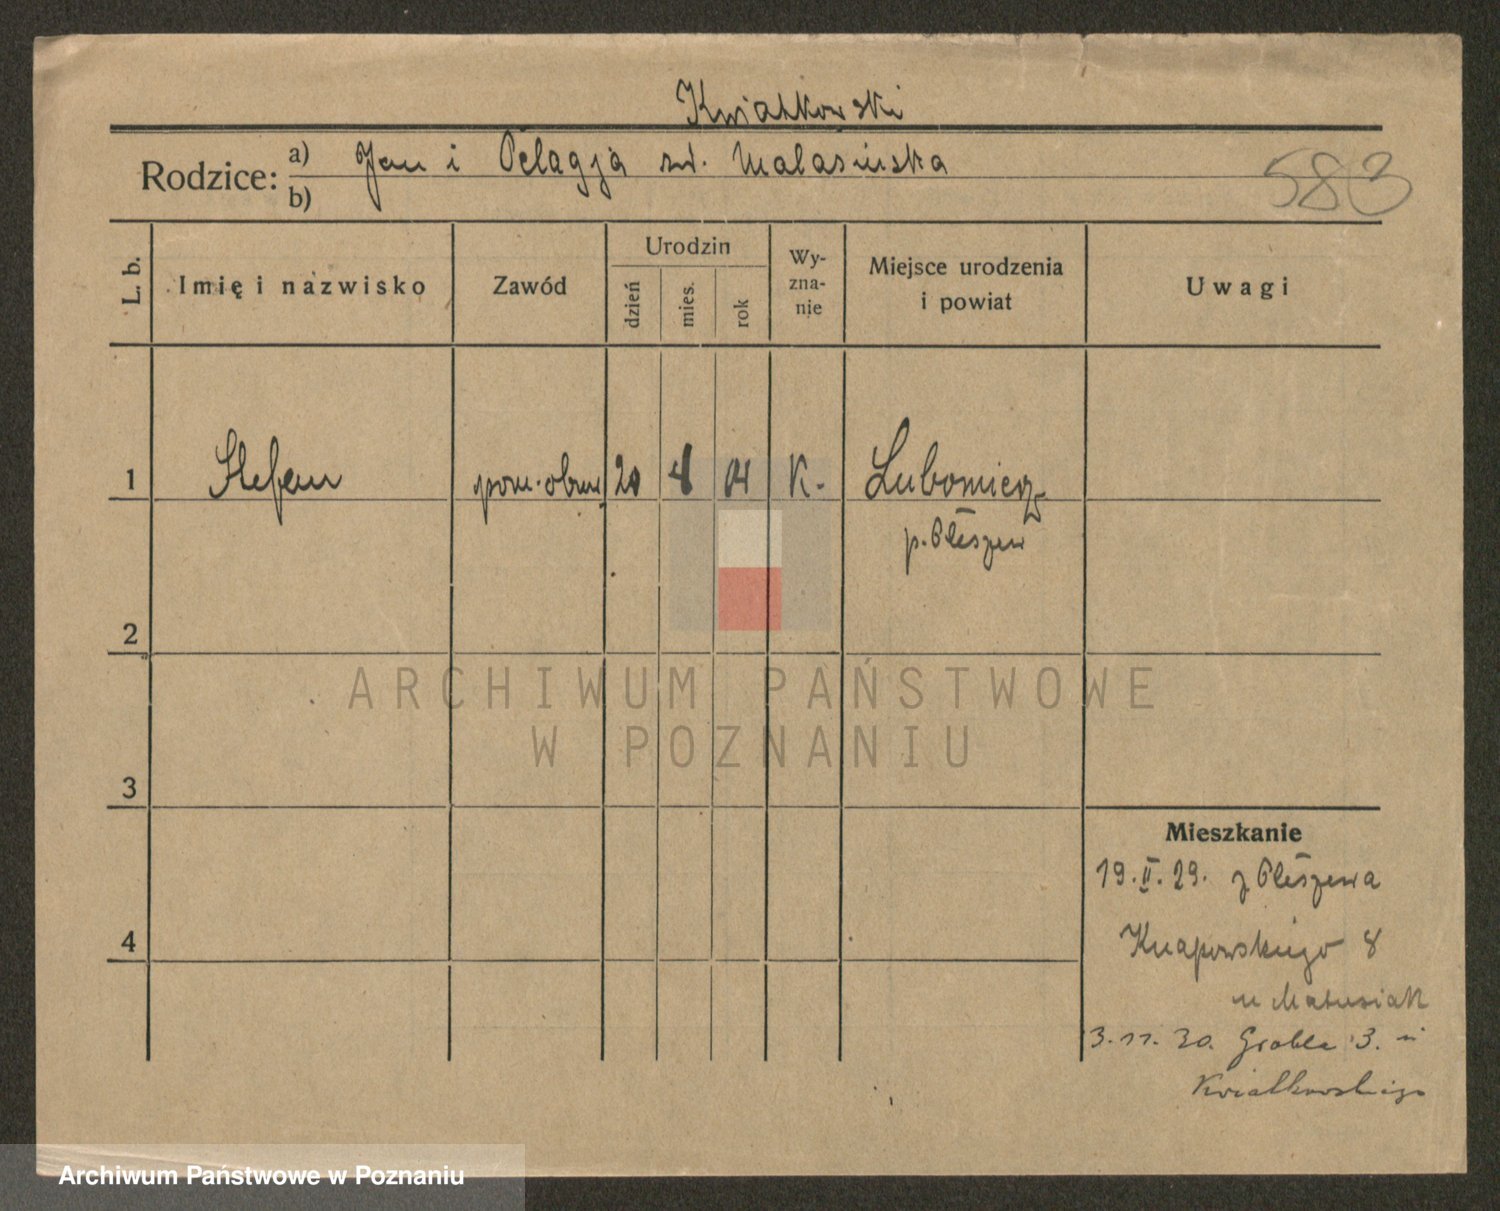 Kwiatkowski
Rodzice: a) Jan i Pelagja zd. Malasińska
b)
583
L. b.
Imię i nazwisko
Zawód
Urodzin
dzień
mies.
rok
Wy-
zna-
nie
Miejsce urodzenia
i powiat
Uwagi
1 Stefan pom. obuw 20 8 04 K. Lubomierz
p. Pleszew
2
ARCHIWUM PAŃSTWOWE
W POZNANIU
3
Mieszkanie
19.II.29. z Pleszewa
4
Knapowskiego 8
u Matusiak
3.11.30. Grobla 3. u
Kwiatkowskiego
Archiwum Państwowe w Poznaniu